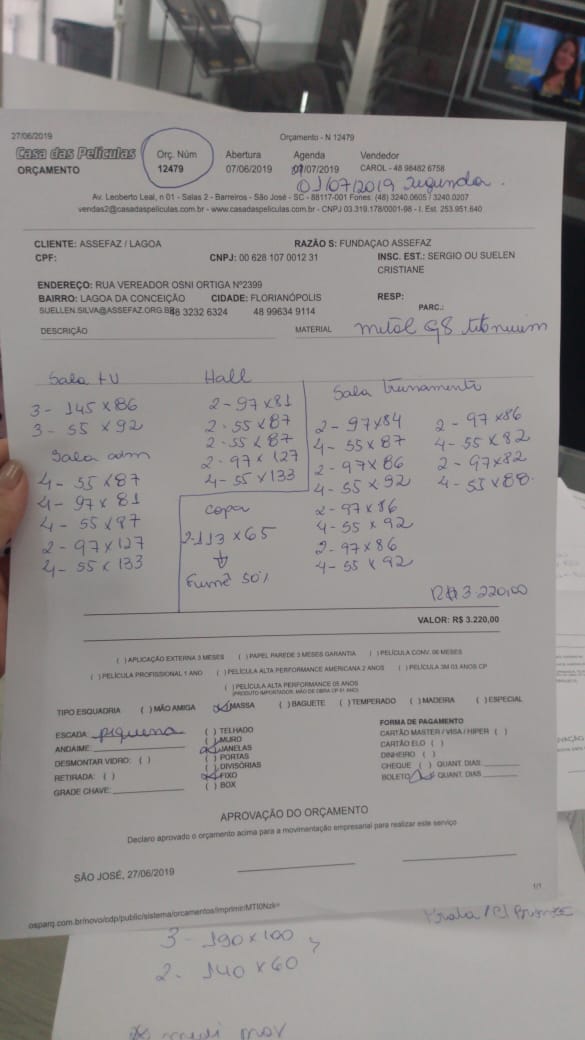 27/06/2019
Orçamento - N 12479
Casa das Películas
ORÇAMENTO
Orç. Núm
12479
Abertura
07/06/2019
Agenda
/07/2019
Vendedor
CAROL - 48 98482 6758
01/07/2019 segunda.
Av. Leoberto Leal, n 01 - Salas 2 - Barreiros - São José - SC - 88117-001 Fones: (48) 3240.0605 / 3240.0207
vendas2@casadaspeliculas.com.br - www.casadaspeliculas.com.br - CNPJ 03.319.178/0001-98 - I. Est. 253.951.640
CLIENTE: ASSEFAZ / LAGOA
RAZÃO S: FUNDAÇAO ASSEFAZ
CPF:
CNPJ: 00 628 107 0012 31
INSC. EST.: SERGIO OU SUELEN
CRISTIANE
ENDEREÇO: RUA VEREADOR OSNI ORTIGA Nº2399
BAIRRO: LAGOA DA CONCEIÇÃO
CIDADE: FLORIANÓPOLIS
RESP:
SUELLEN.SILVA@ASSEFAZ.ORG.BR
48 3232 6324
48 99634 9114
PARC.:
DESCRIÇÃO
MATERIAL
metal G8 titanium
Sala TV
3- 145 x 86
3- 55 x 92
Sala adm
4- 55 x 87
4- 97 x 81
4- 55 x 97
2- 97 x 127
4- 55 x 133
Hall
2- 97 x 81
2- 55 x 87
2- 55 x 87
2- 97 x 127
4- 55 x 133
copa
2- 113 x 65
Fumê 50%
Sala treinamento
2- 97 x 84
4- 55 x 87
2- 97 x 86
4- 55 x 92
2- 97 x 86
4- 55 x 92
2- 97 x 86
4- 55 x 92
2- 97 x 86
4- 55 x 82
2- 97 x 82
4- 55 x 88.
R$ 3.220,00
VALOR: R$ 3.220,00
( ) APLICAÇÃO EXTERNA 3 MESES ( ) PAPEL PAREDE 3 MESES GARANTIA ( ) PELÍCULA CONV. 06 MESES
( ) PELÍCULA PROFISSIONAL 1 ANO ( ) PELÍCULA ALTA PERFORMANCE AMERICANA 2 ANOS ( ) PELÍCULA 3M 03 ANOS CP
( ) PELÍCULA ALTA PERFORMANCE 05 ANOS
(PRODUTO IMPORTADOR. MÃO DE OBRA CP 01 ANO)
TIPO ESQUADRIA ( ) MÃO AMIGA (x) MASSA ( ) BAGUETE ( ) TEMPERADO ( ) MADEIRA ( ) ESPECIAL
ESCADA: pequena
ANDAIME:
DESMONTAR VIDRO: ( )
RETIRADA: ( )
GRADE CHAVE:
( ) TELHADO
( ) MURO
(x) JANELAS
( ) PORTAS
( ) DIVISÓRIAS
(x) FIXO
( ) BOX
FORMA DE PAGAMENTO
CARTÃO MASTER / VISA / HIPER ( )
CARTÃO ELO ( )
DINHEIRO ( )
CHEQUE ( ) QUANT. DIAS
BOLETO (x) QUANT. DIAS
APROVAÇÃO DO ORÇAMENTO
Declaro aprovado o orçamento acima para a movimentação empresarial para realizar este serviço
SÃO JOSÉ, 27/06/2019
1/1
osparq.com.br/novo/cdp/public/sistema/orcamentos/imprimir/MTI0Nzk=
3- 190 x 100
2- 140 x 60